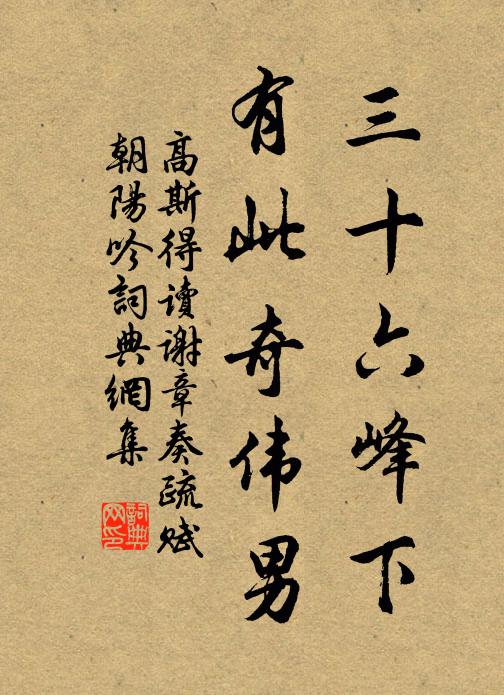 三十六峰下
有此奇伟男
高斯得读谢章奏疏赋
朝陽吟詞典網集
詞典
网印